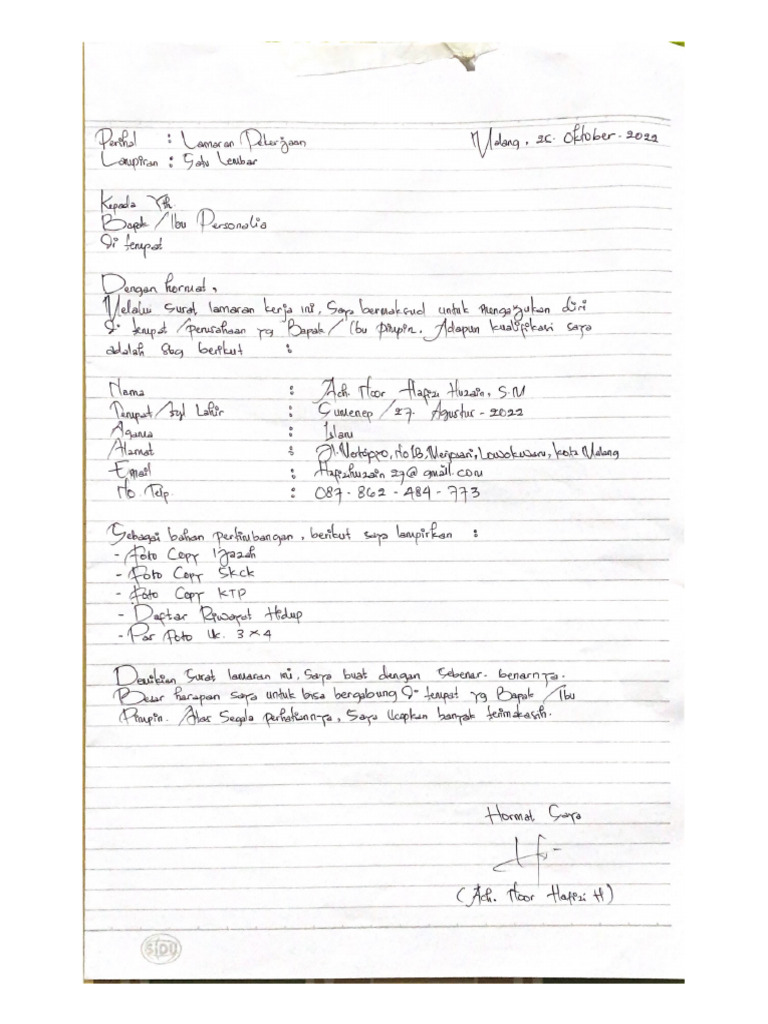 Perihal : Lamaran Pekerjaan
Malang, 26 Oktober 2022
Lampiran : Satu Lembar
Kepada Yth.
Bapak / Ibu Personalia
Di tempat
Dengan hormat,
Melalui surat lamaran kerja ini, Saya bermaksud untuk mengajukan diri
di tempat / perusahaan yg Bapak / Ibu pimpin. Adapun kualifikasi saya
adalah sbg berikut :
Nama : Ach. Noor Hafizi Huzain, S.M
Tempat / tgl Lahir : Sumenep / 27. Agustus - 2022
Agama : Islam
Alamat : Jl. No 1B, Merjosari, Lowokwaru, kota Malang
Email : Hafizihuzain27@gmail.com
No. Telp. : 087 - 862 - 484 - 773
Sebagai bahan pertimbangan, berikut saya lampirkan :
- Foto Copy Ijazah
- Foto Copy Skck
- Foto Copy KTP
- Daftar Riwayat Hidup
- Pas Foto Uk. 3 x 4
Demikian Surat lamaran ini, Saya buat dengan sebenar-benarnya.
Besar harapan saya untuk bisa bergabung di tempat yg Bapak / Ibu
Pimpin. Atas Segala perhatiannya, Saya Ucapkan banyak terimakasih.
Hormat Saya
(Ach. Noor Hafizi H)
SIDU